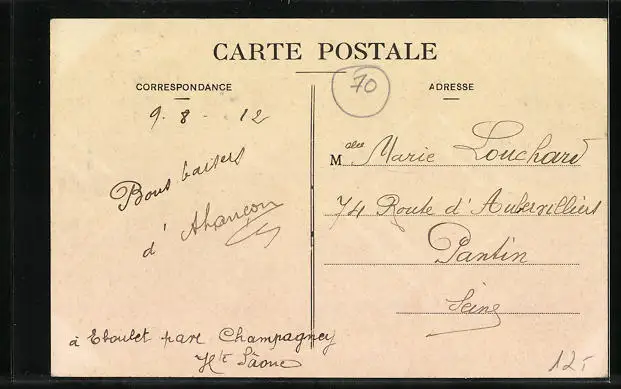 CARTE POSTALE
CORRESPONDANCE
70
ADRESSE
9. 8 - 12
Bons baisers
d'
à Eboulet par Champagney
Hte Sâone
Melle Marie Louchard
74 Route d'Aubervilliers
Pantin
Seine
12,-